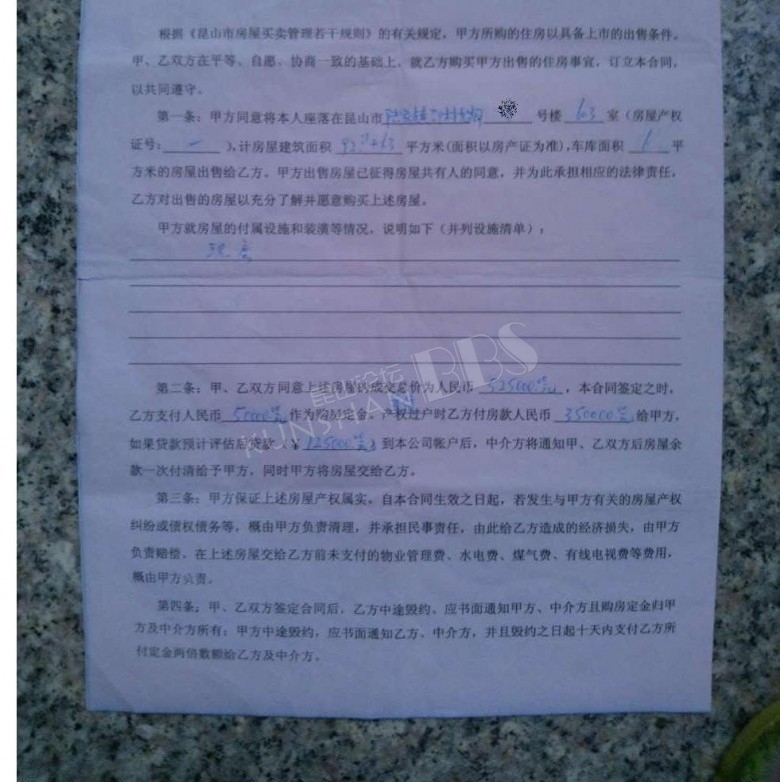 根据《昆山市房屋买卖管理若干规则》的有关规定，甲方所购的住房以具备上市的出售条件。
甲、乙双方在平等、自愿、协商一致的基础上，就乙方购买甲方出售的住房事宜，订立本合同，
以共同遵守。
第一条：甲方同意将本人座落在昆山市 号楼 603 室（房屋产权
证号： 一 ），计房屋建筑面积 平方米（面积以房产证为准），车库面积 6 平
方米的房屋出售给乙方。甲方出售房屋已征得房屋共有人的同意，并为此承担相应的法律责任，
乙方对出售的房屋以充分了解并愿意购买上述房屋。
甲方就房屋的附属设施和装潢等情况，说明如下（并列设施清单）：
第二条：甲、乙双方同意上述房屋的成交总价为人民币 525000 ，本合同签定之时，
乙方支付人民币 50000 作为购房定金。产权过户时乙方付房款人民币 350000 给甲方，
如果贷款预计评估后贷款（￥125000 ）到本公司帐户后，中介方将通知甲、乙双方后房屋余
款一次付清给予甲方，同时甲方将房屋交给乙方。
第三条：甲方保证上述房屋产权属实，自本合同生效之日起，若发生与甲方有关的房屋产权
纠纷或债权债务等，概由甲方负责清理，并承担民事责任，由此给乙方造成的经济损失，由甲方
负责赔偿。在上述房屋交给乙方前未支付的物业管理费、水电费、煤气费、有线电视费等费用，
概由甲方负责。
第四条：甲、乙双方签定合同后，乙方中途毁约，应书面通知甲方、中介方且购房定金归甲
方及中介方所有；甲方中途毁约，应书面通知乙方、中介方，并且毁约之日起十天内支付乙方所
付定金两倍数额给乙方及中介方。
昆山论坛
KUNSHAN BBS